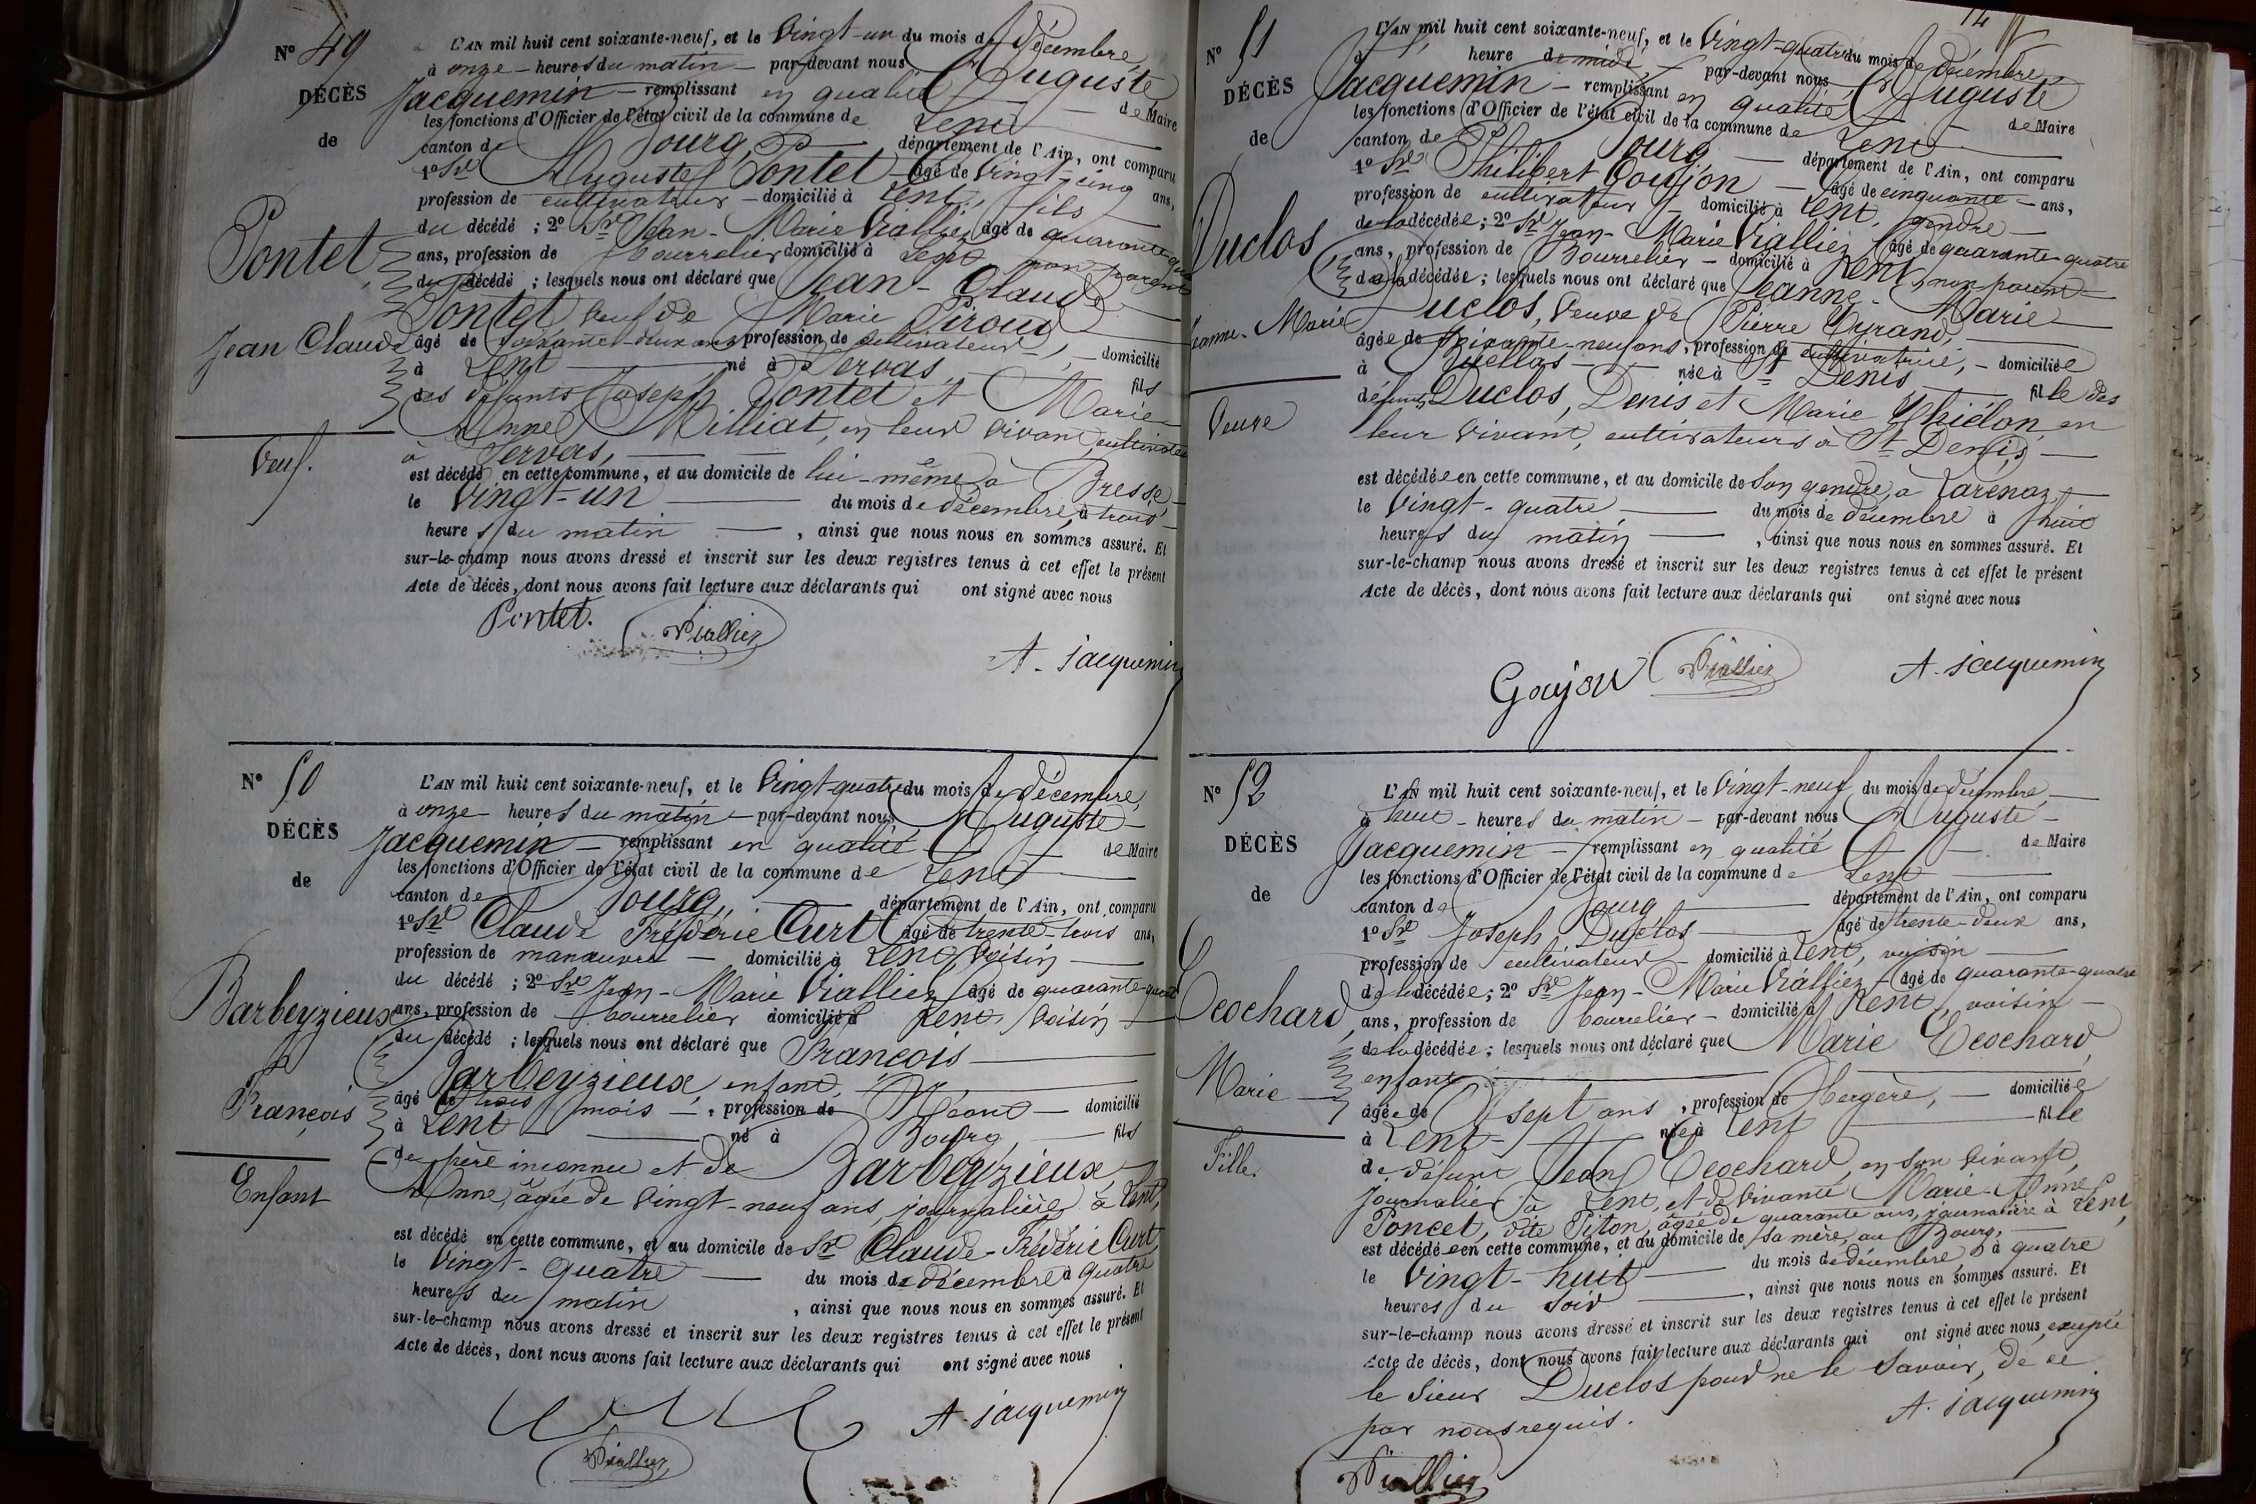 N° 49
DÉCÈS
de
Pontet
Jean Claude
Veuf.
L'AN mil huit cent soixante-neuf, et le Vingt-un du mois de décembre
à onze heures du matin par-devant nous Auguste
Jacquemin remplissant en qualité de Maire
les fonctions d'Officier de l'état civil de la commune de Lent
canton de Bourg, département de l'Ain, ont comparu
1° Sr Auguste Pontet âgé de Vingt-cinq ans,
profession de cultivateur domicilié à Lent, fils
du décédé ; 2° Sr Jean-Marie Viallier âgé de quarante-quatre
ans, profession de bourrelier domicilié à Lent non parent
du décédé ; lesquels nous ont déclaré que Jean-Claude
Pontet veuf de Marie Piroud
âgé de soixante-deux ans profession de cultivateur, domicilié
à Lent né à Servas, fils
des défunts Joseph Pontet et Marie
Anne Milliat, en leur vivant, cultivateurs
à Servas,
est décédé en cette commune, et au domicile de lui-même à Bresse
le Vingt-un du mois de décembre, à trois
heures du matin , ainsi que nous nous en sommes assuré. Et
sur-le-champ nous avons dressé et inscrit sur les deux registres tenus à cet effet le présent
Acte de décès, dont nous avons fait lecture aux déclarants qui ont signé avec nous
Pontet. Viallier
A. Jacquemin
N° 50
DÉCÈS
de
Barbeyzieux
François
Enfant
L'AN mil huit cent soixante-neuf, et le Vingt-quatre du mois de décembre,
à onze heures du matin par-devant nous Auguste
Jacquemin remplissant en qualité de Maire
les fonctions d'Officier de l'état civil de la commune de Lent
canton de Bourg, département de l'Ain, ont comparu
1° Sr Claude Frédéric Curt âgé de trente-trois ans,
profession de manœuvre domicilié à Lent Voisin
du décédé ; 2° Sr Jean-Marie Viallier âgé de quarante-quatre
ans, profession de bourrelier domicilié à Lent Voisin
du décédé ; lesquels nous ont déclaré que François
Barbeyzieux, enfant,
âgé de trois mois, profession de Néant domicilié
à Lent né à Bourg, fils
de père inconnu et de Barbeyzieux,
Anne, âgée de Vingt-neuf ans, journalière à Lent,
est décédé en cette commune, et au domicile de Sr Claude-Frédéric Curt
le Vingt-quatre du mois de décembre à quatre
heures du matin , ainsi que nous nous en sommes assuré. Et
sur-le-champ nous avons dressé et inscrit sur les deux registres tenus à cet effet le présent
Acte de décès, dont nous avons fait lecture aux déclarants qui ont signé avec nous
A. Jacquemin
Viallier
14
N° 51
DÉCÈS
de
Duclos
Jeanne-Marie
Veuve
L'AN mil huit cent soixante-neuf, et le Vingt-quatre du mois de décembre,
heure de midi par-devant nous Auguste
Jacquemin remplissant en qualité de Maire
les fonctions d'Officier de l'état civil de la commune de Lent
canton de Bourg département de l'Ain, ont comparu
1° Sr Philibert Goujon âgé de cinquante ans,
profession de cultivateur domicilié à Lent, gendre
de la décédée ; 2° Sr Jean-Marie Viallier âgé de quarante-quatre
ans, profession de Bourrelier domicilié à Lent, non parent
de la décédée ; lesquels nous ont déclaré que Jeanne-Marie
Duclos, Veuve de Pierre Cyrand,
âgée de soixante-neuf ans, profession de cultivatrice, domiciliée
à Buellas née à St Denis fille des
défunts Duclos, Denis et Marie Chiclon, en
leur vivant, cultivateurs à St Denis,
est décédée en cette commune, et au domicile de son gendre, à Larenaz,
le Vingt-quatre du mois de décembre à huit
heures du matin , ainsi que nous nous en sommes assuré. Et
sur-le-champ nous avons dressé et inscrit sur les deux registres tenus à cet effet le présent
Acte de décès, dont nous avons fait lecture aux déclarants qui ont signé avec nous
Goujon Viallier A. Jacquemin
N° 52
DÉCÈS
de
Ecochard
Marie
Fille.
L'AN mil huit cent soixante-neuf, et le Vingt-neuf du mois de décembre,
à huit heures du matin par-devant nous Auguste
Jacquemin remplissant en qualité de Maire
les fonctions d'Officier de l'état civil de la commune de Lent
canton de Bourg département de l'Ain, ont comparu
1° Sr Joseph Duclos âgé de trente-deux ans,
profession de cultivateur domicilié à Lent, voisin
de la décédée ; 2° Sr Jean-Marie Viallier âgé de quarante-quatre
ans, profession de bourrelier domicilié à Lent, voisin
de la décédée ; lesquels nous ont déclaré que Marie Ecochard
enfant
âgée de sept ans, profession de Bergère, domiciliée
à Lent née à Lent fille
de défunt Jean Ecochard, en son vivant,
journalier à Lent, et de vivante Marie-Anne
Poncet, dite Piton, âgée de quarante ans, journalière à Lent,
est décédée en cette commune, et au domicile de sa mère, au Bourg,
le Vingt-huit du mois de décembre, à quatre
heures du soir , ainsi que nous nous en sommes assuré. Et
sur-le-champ nous avons dressé et inscrit sur les deux registres tenus à cet effet le présent
Acte de décès, dont nous avons fait lecture aux déclarants qui ont signé avec nous, excepté
le sieur Duclos pour ne le savoir, de ce
par nous requis.
A. Jacquemin
Viallier